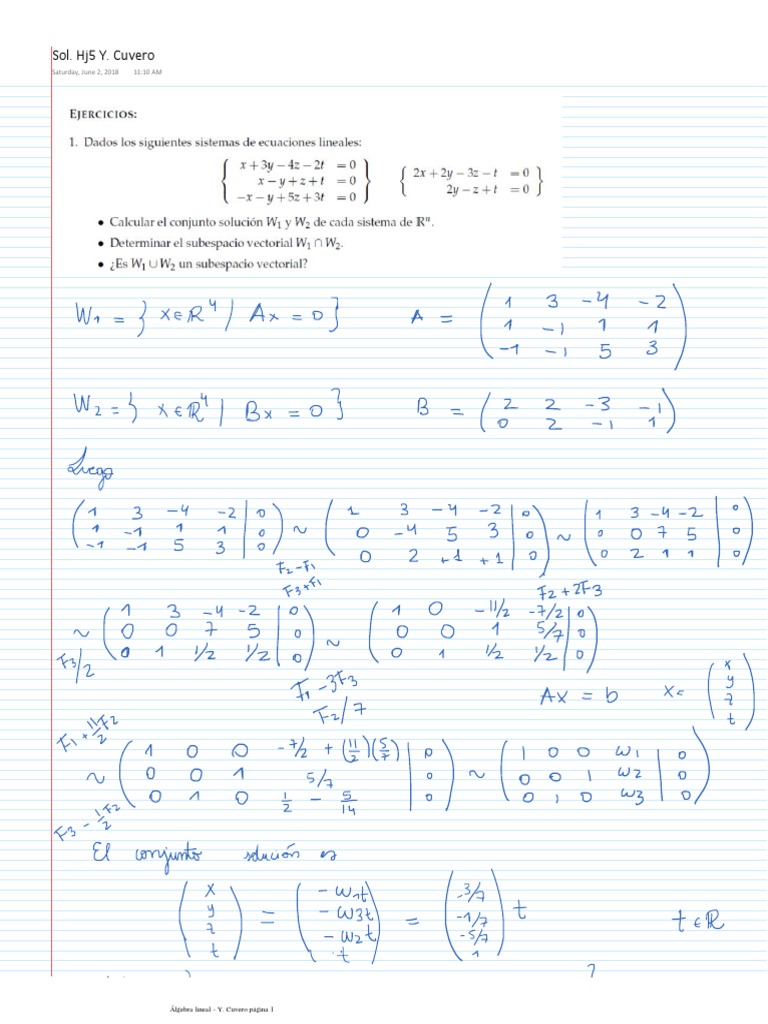 Sol. Hj5 Y. Cuvero
Saturday, June 2, 2018 11:10 AM
EJERCICIOS:
1. Dados los siguientes sistemas de ecuaciones lineales:
x + 3y − 4z − 2t = 0
x − y + z + t = 0
−x − y + 5z + 3t = 0
2x + 2y − 3z − t = 0
2y − z + t = 0
• Calcular el conjunto solución W₁ y W₂ de cada sistema de ℝⁿ.
• Determinar el subespacio vectorial W₁ ∩ W₂.
• ¿Es W₁ ∪ W₂ un subespacio vectorial?
W₁ = { x ∈ ℝ⁴ | Ax = 0 } A = ( 1 3 −4 −2
1 −1 1 1
−1 −1 5 3 )
W₂ = { x ∈ ℝ⁴ | Bx = 0 } B = ( 2 2 −3 −1
0 2 −1 1 )
Luego
( 1 3 −4 −2 | 0
1 −1 1 1 | 0
−1 −1 5 3 | 0 )
F₂ − F₁
F₃ + F₁
~ ( 1 3 −4 −2 | 0
0 −4 5 3 | 0
0 2 +1 +1 | 0 )
F₂ + 2F₃
~ ( 1 3 −4 −2 | 0
0 0 7 5 | 0
0 2 1 1 | 0 )
F₃/2
~ ( 1 3 −4 −2 | 0
0 0 7 5 | 0
0 1 1/2 1/2 | 0 )
F₁ − 3F₃
F₂/7
~ ( 1 0 −11/2 −7/2 | 0
0 0 1 5/7 | 0
0 1 1/2 1/2 | 0 )
Ax = b x = ( x
y
z
t )
F₁ + 11/2 F₂
F₃ − 1/2 F₂
~ ( 1 0 0 −7/2 + (11/2)(5/7) | 0
0 0 1 5/7 | 0
0 1 0 1/2 − 5/14 | 0 )
~ ( 1 0 0 w1 | 0
0 0 1 w2 | 0
0 1 0 w3 | 0 )
El conjunto solución es
( x
y
z
t )
= ( − w1t
− w3t
− w2t
t )
= ( −3/7
−1/7
−5/7
1 ) t t ∈ ℝ
Álgebra lineal - Y. Cuvero página 1